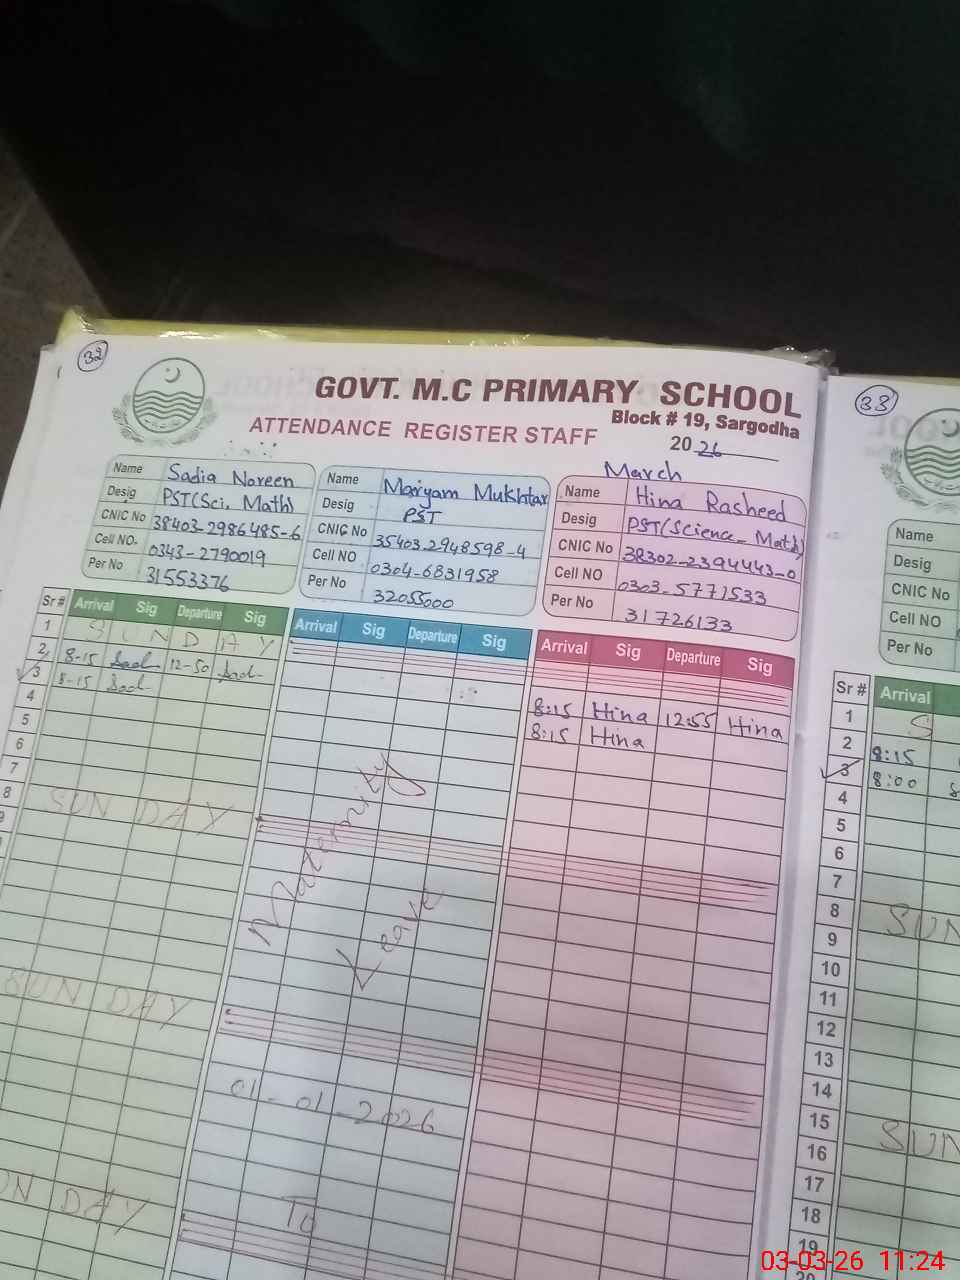 32
GOVT. M.C PRIMARY SCHOOL
Block # 19, Sargodha
ATTENDANCE REGISTER STAFF
2026
March
Name Sadia Noreen
Desig PST(Sci, Math)
CNIC No 38403-2986485-6
Cell NO. 0343-2790019
Per No 31553376
Name Maryam Mukhtar
Desig PST
CNIC No 35403-2948598-4
Cell NO 0304-6831958
Per No 32055000
Name Hina Rasheed
Desig PST(Science-Math)
CNIC No 38302-2394443-0
Cell NO 0303-5771533
Per No 31726133
Sr # Arrival Sig Departure Sig
Arrival Sig Departure Sig
Arrival Sig Departure Sig
1 SUNDAY
2 8-15 Sad 12-50 Sad
3 8-15 Sad
4
5
6
7
8 SUNDAY
9
SUNDAY
SUNDAY
Maternity
Leave
01-01-2026
To
8:15 Hina 12:55 Hina
8:15 Hina
33
Name
Desig
CNIC No
Cell NO
Per No
Sr # Arrival
1 S
2 8:15
3 8:00 S
4
5
6
7
8 SUN
9
10
11
12
13
14
15 SUN
16
17
18
19
20
03-03-26 11:24